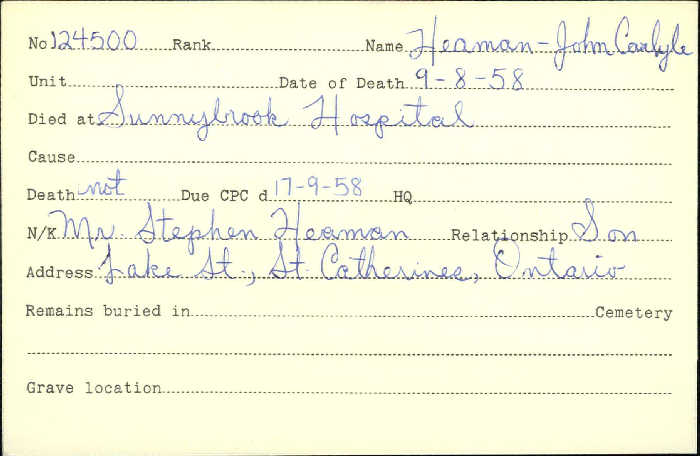 No 124500 Rank Name Heaman - John Carlyle
Unit Date of Death 9-8-58
Died at Sunnybrook Hospital
Cause
Death not Due CPC d 17-9-58 HQ
N/K Mr. Stephen Heaman Relationship Son
Address Lake St., St Catherines, Ontario
Remains buried in Cemetery
Grave location